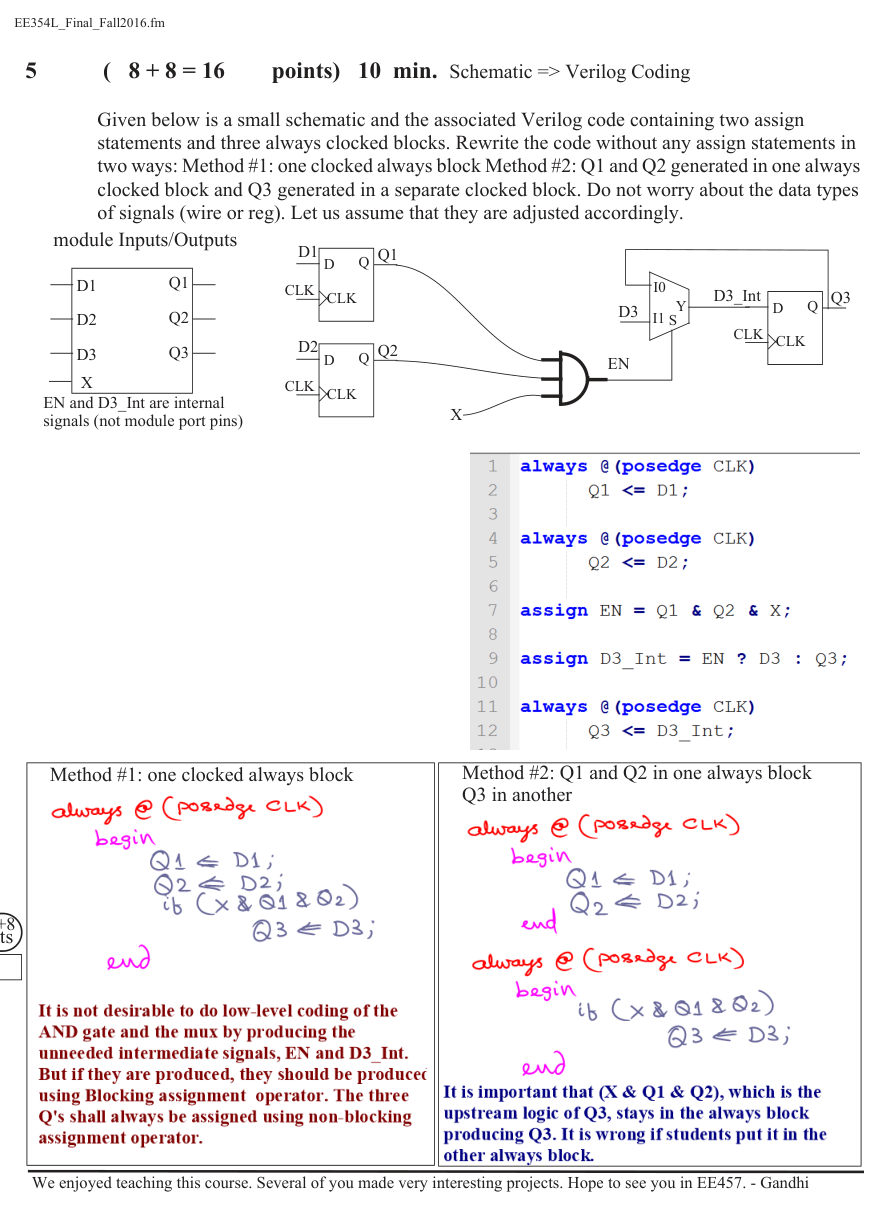 EE354L_Final_Fall2016.fm
5 ( 8 + 8 = 16 points) 10 min. Schematic => Verilog Coding
Given below is a small schematic and the associated Verilog code containing two assign
statements and three always clocked blocks. Rewrite the code without any assign statements in
two ways: Method #1: one clocked always block Method #2: Q1 and Q2 generated in one always
clocked block and Q3 generated in a separate clocked block. Do not worry about the data types
of signals (wire or reg). Let us assume that they are adjusted accordingly.
module Inputs/Outputs
D1 Q1
D2 Q2
D3 Q3
X
EN and D3_Int are internal
signals (not module port pins)
D1 D Q Q1
CLK CLK
D2 D Q Q2
CLK CLK
X
EN
I0
D3 I1 S Y
D3_Int D Q Q3
CLK CLK
1 always @(posedge CLK)
2 Q1 <= D1;
3
4 always @(posedge CLK)
5 Q2 <= D2;
6
7 assign EN = Q1 & Q2 & X;
8
9 assign D3_Int = EN ? D3 : Q3;
10
11 always @(posedge CLK)
12 Q3 <= D3_Int;
Method #1: one clocked always block
always @ (posedge CLK)
begin
Q1 <= D1;
Q2 <= D2;
if (X & Q1 & Q2)
Q3 <= D3;
end
+8
ts
It is not desirable to do low-level coding of the
AND gate and the mux by producing the
unneeded intermediate signals, EN and D3_Int.
But if they are produced, they should be produced
using Blocking assignment operator. The three
Q's shall always be assigned using non-blocking
assignment operator.
Method #2: Q1 and Q2 in one always block
Q3 in another
always @ (posedge CLK)
begin
Q1 <= D1;
Q2 <= D2;
end
always @ (posedge CLK)
begin
if (X & Q1 & Q2)
Q3 <= D3;
end
It is important that (X & Q1 & Q2), which is the
upstream logic of Q3, stays in the always block
producing Q3. It is wrong if students put it in the
other always block.
We enjoyed teaching this course. Several of you made very interesting projects. Hope to see you in EE457. - Gandhi